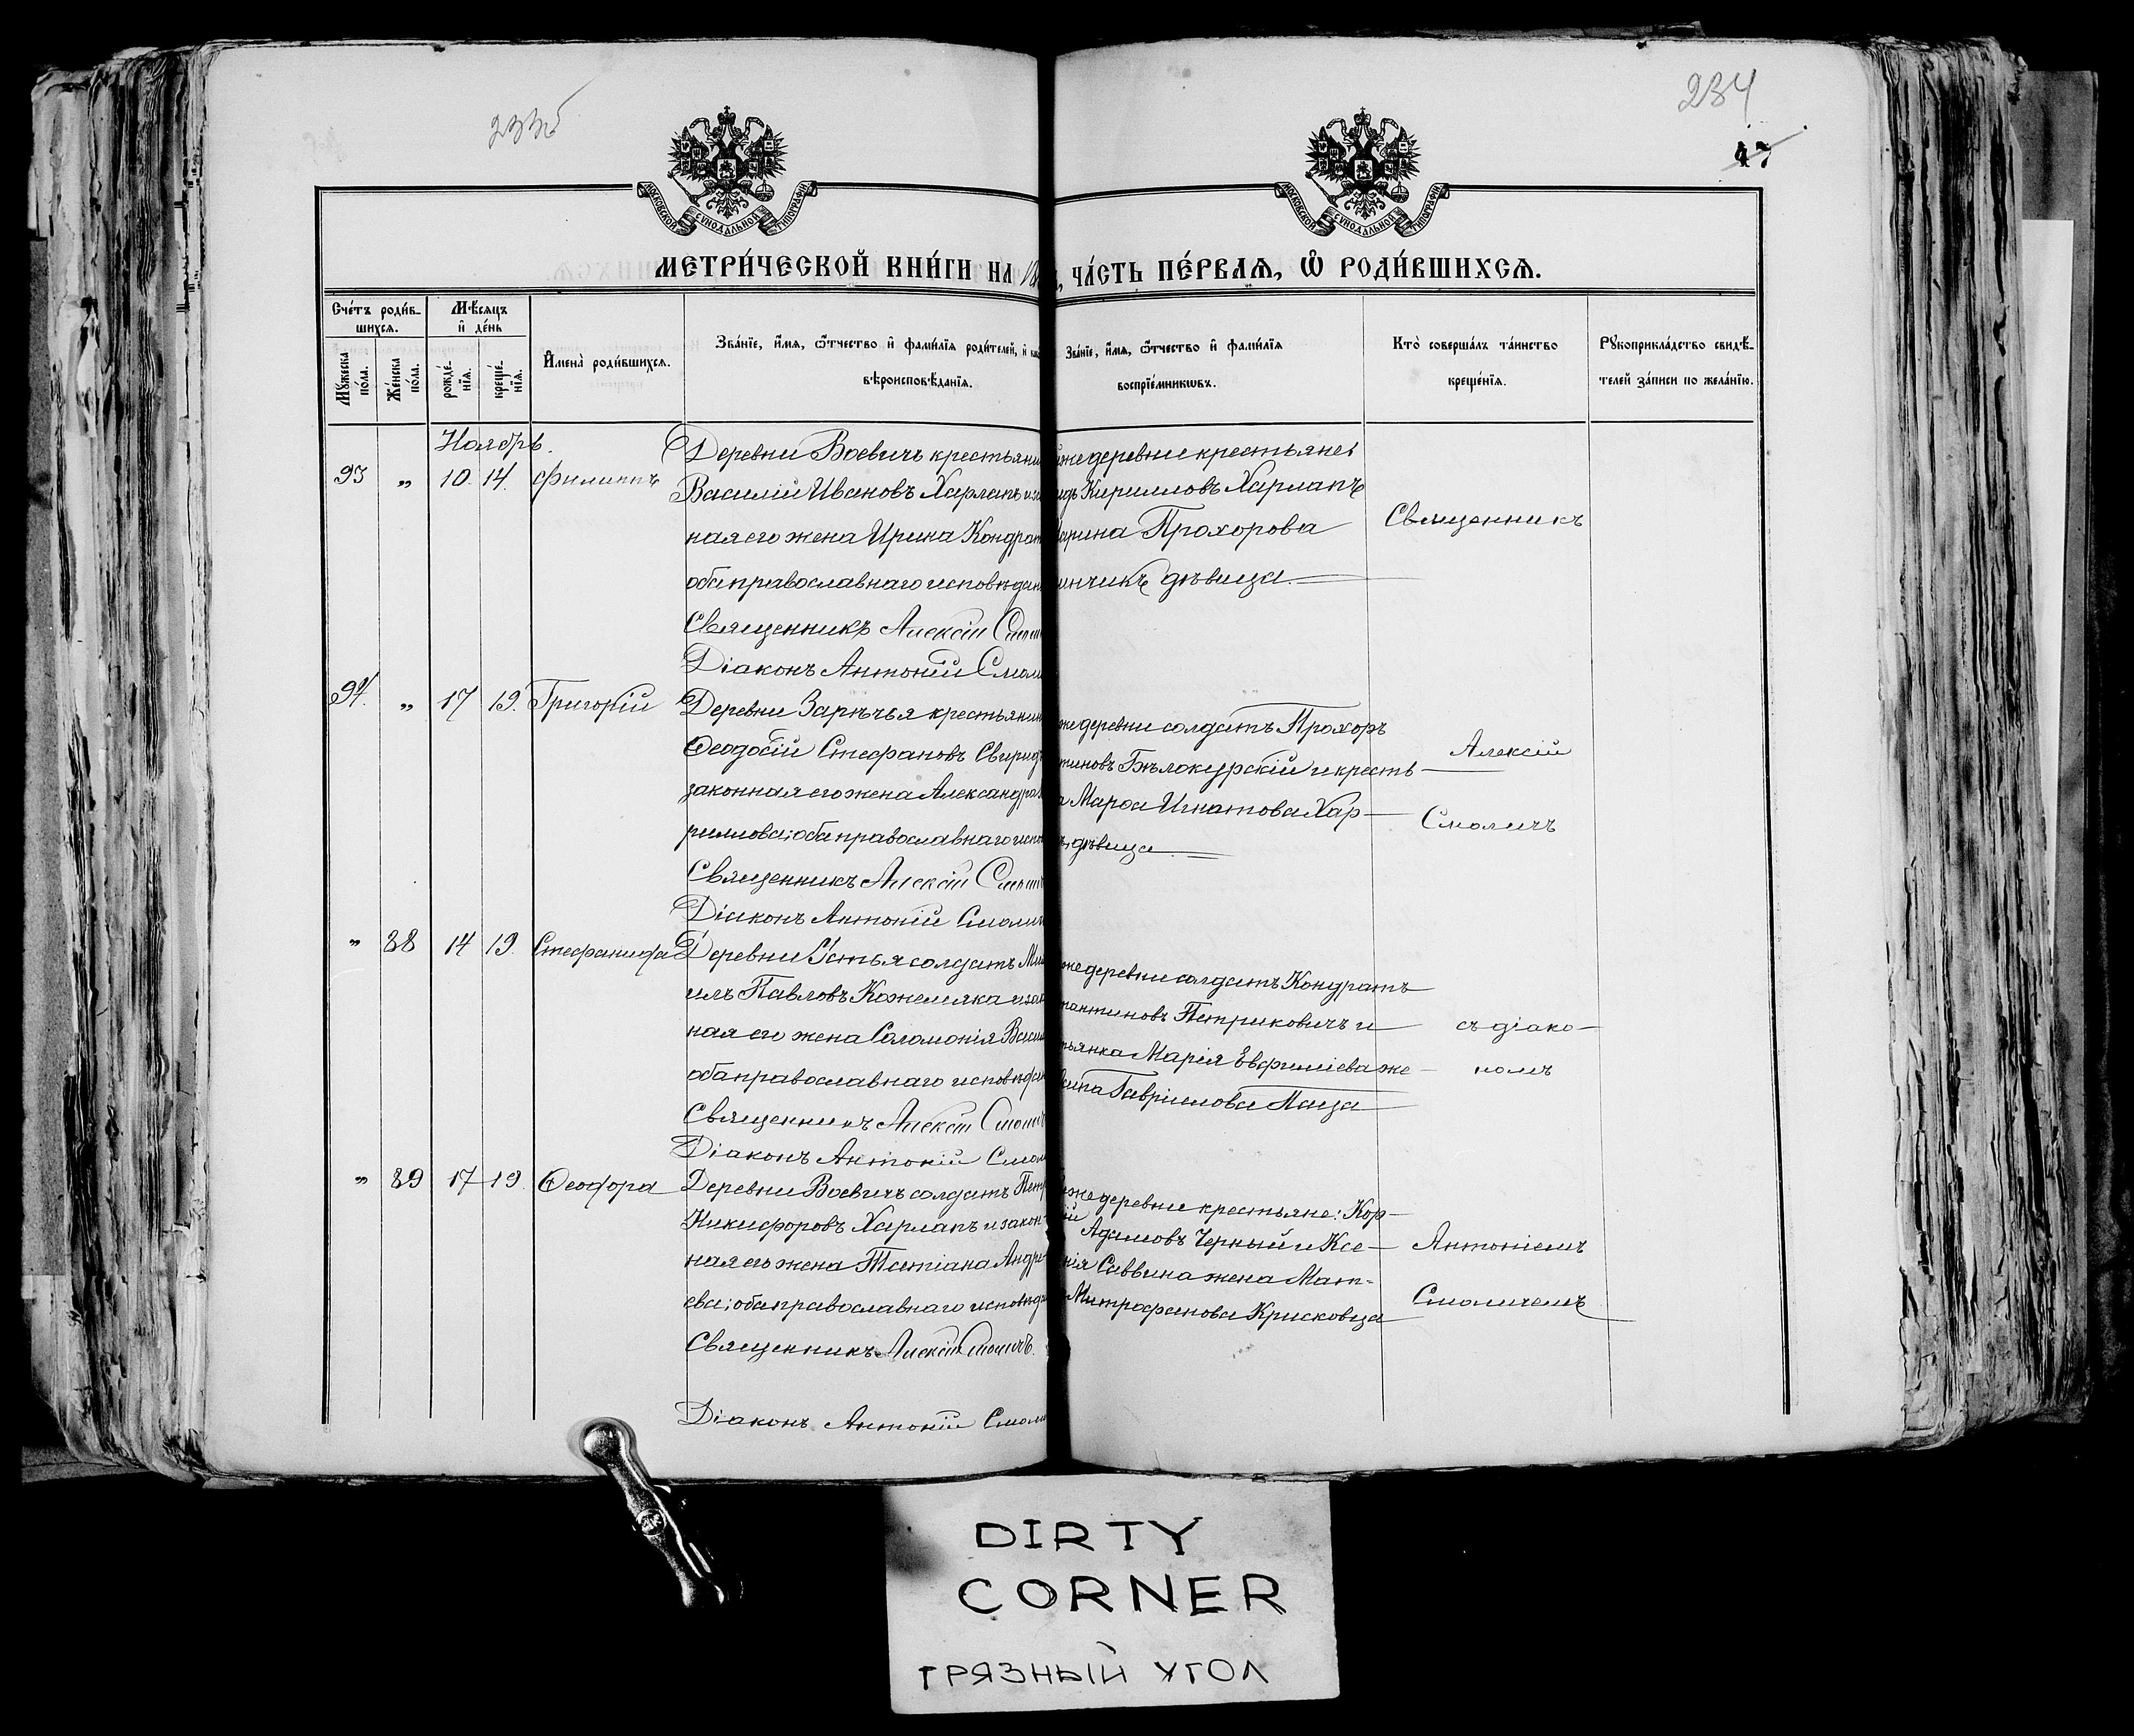 233б
234
47
МОСКОВСКОЙ СѴНОДАЛЬНОЙ ТИПОГРАФІИ
МОСКОВСКОЙ СѴНОДАЛЬНОЙ ТИПОГРАФІИ
МЕТРИ́ЧЕСКОЙ КНИ́ГИ НА 18
, ЧА́СТЬ ПЕ́РВАѦ, Ѿ РОДИ́ВШИХСѦ.
Сче́тъ роди́в-
шихсѧ.
Мѹ́жеска по́ла.
Же́нска по́ла.
Мѣ́сѧцъ и де́нь
рожде́нїѧ.
креще́нїѧ.
Имена̀ роди́вшихсѧ.
Зва́нїе, и́мѧ, ѻ́тчество и фами́лїѧ роди́телей, и
вѣроисповѣ́данїѧ.
Зва́нїе, и́мѧ, ѻ́тчество и фами́лїѧ
воспрїе́мникѡвъ.
Кто̀ соверша́лъ та́инство
креще́нїѧ.
Рѹкоприкла́дство свидѣ́-
телей за́писи по жела́нїю.
Ноябрь.
93 „ 10. 14. Филиппъ
Деревни Воевичъ крестьянин
Василій Ивановъ Харлапъ и за
ная его жена Ирина Кондрат
оба православнаго исповѣдан
Священникъ Алексій Смоли
Діаконъ Антоній Смоли
же деревни крестьяне:
идъ Кирилловъ Харлапъ
арина Прохорова
инчикъ дѣвица.
Священникъ
94. „ 17 19. Григорій
Деревни Зарѣчья крестьянин
Ѳеодосій Стефановъ Свирид
законная его жена Александра
рилова; оба православнаго испо
Священникъ Алексій Смоли
Діаконъ Антоній Смоли
же деревни солдатъ Прохоръ
тиновъ Бѣлокурскій и кресть-
а Марѳа Игнатова Хар-
ъ, дѣвица.
Алексій
Смоличъ
„ 88 14 19. Стефанида
Деревни Устья солдатъ Ми
илъ Павловъ Кожемяка и зак
ная его жена Соломонія Васил
оба православнаго исповѣдан
Священникъ Алексій Смолич
Діаконъ Антоній Смол
же деревни солдатъ Кондратъ
тантиновъ Петриковичъ и
тьянка Марія Евфиміева же-
Гавріилова Паца
съ діако-
номъ
„ 89 17 19 Ѳеодора
Деревни Воевичъ солдатъ Петр
Никифоровъ Харлапъ и закон-
ная его жена Татіана Андре
ева; оба православнаго исповѣда
Священникъ Алексій Смоличъ.
Діаконъ Антоній Смоли
же деревни крестьяне: Кор-
ій Адамовъ Черный и Ксе-
нія Саввина жена Мат-
Митрофанова Крисковца
Антоніемъ
Смоличемъ
DIRTY
CORNER
ГРЯЗНЫЙ УГОЛ